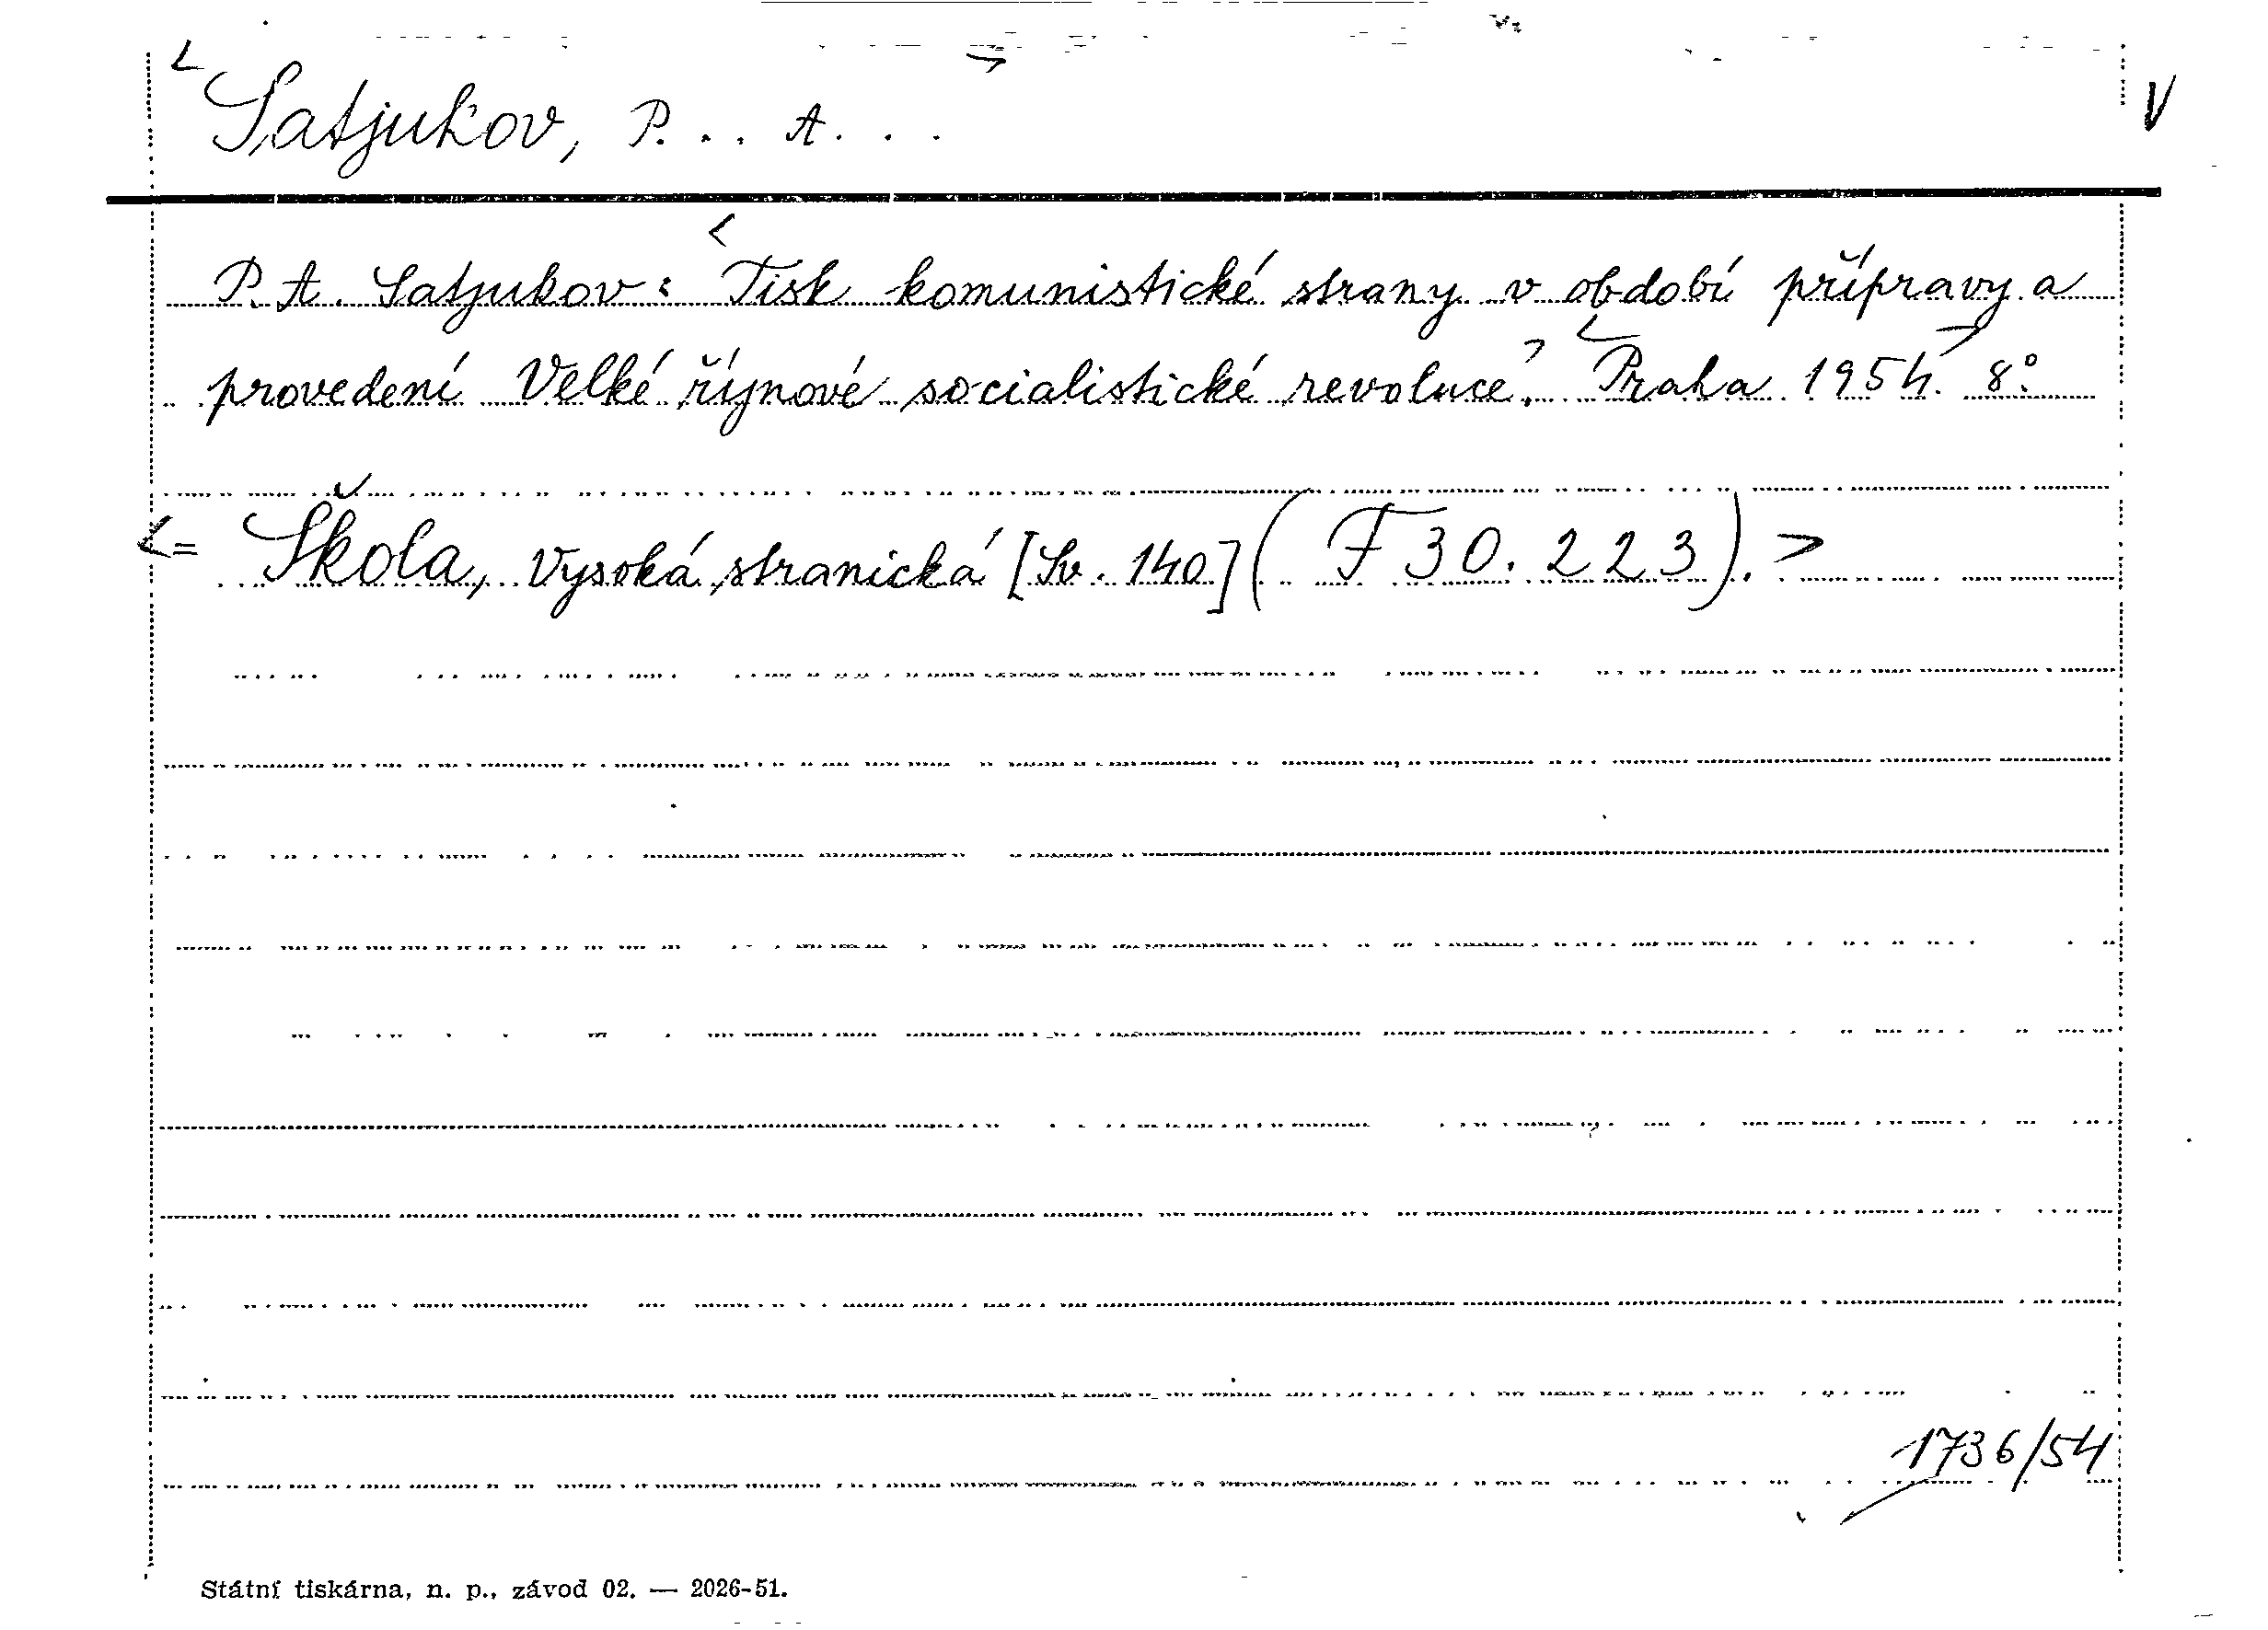 Satjukov, P. . . A. . . .
V
P. A. Satjukov: Tisk komunistické strany v období přípravy a
provedení Velké říjnové socialistické revoluce. Praha 1954. 8°.
<= Škola, Vysoká stranická [Sv. 140] ( F 30.223). >
1736/54
Státní tiskárna, n. p., závod 02. — 2026-51.